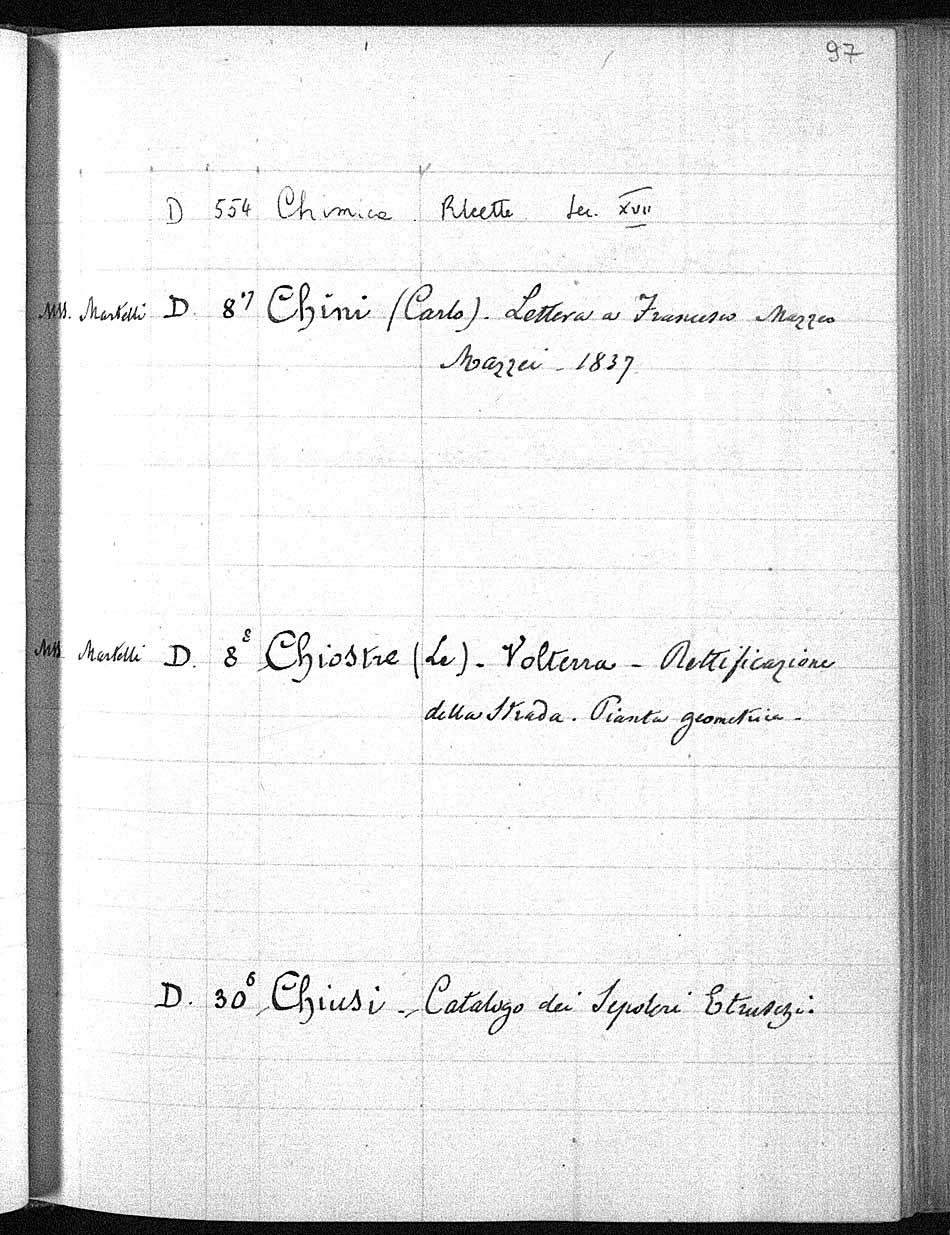 97
D 554 Chimica. Ricette Sec. XVII
Mss. Martelli D. 8⁷ Chini (Carlo). Lettera a Francesco Mazzeo
Mazzei - 1837
Mss Martelli D. 8⁸ Chiostre (Le) - Volterra - Rettificazione
della Strada. Pianta geometrica -
D. 30⁶ Chiusi - Catalogo dei Sepolcri Etruschi.